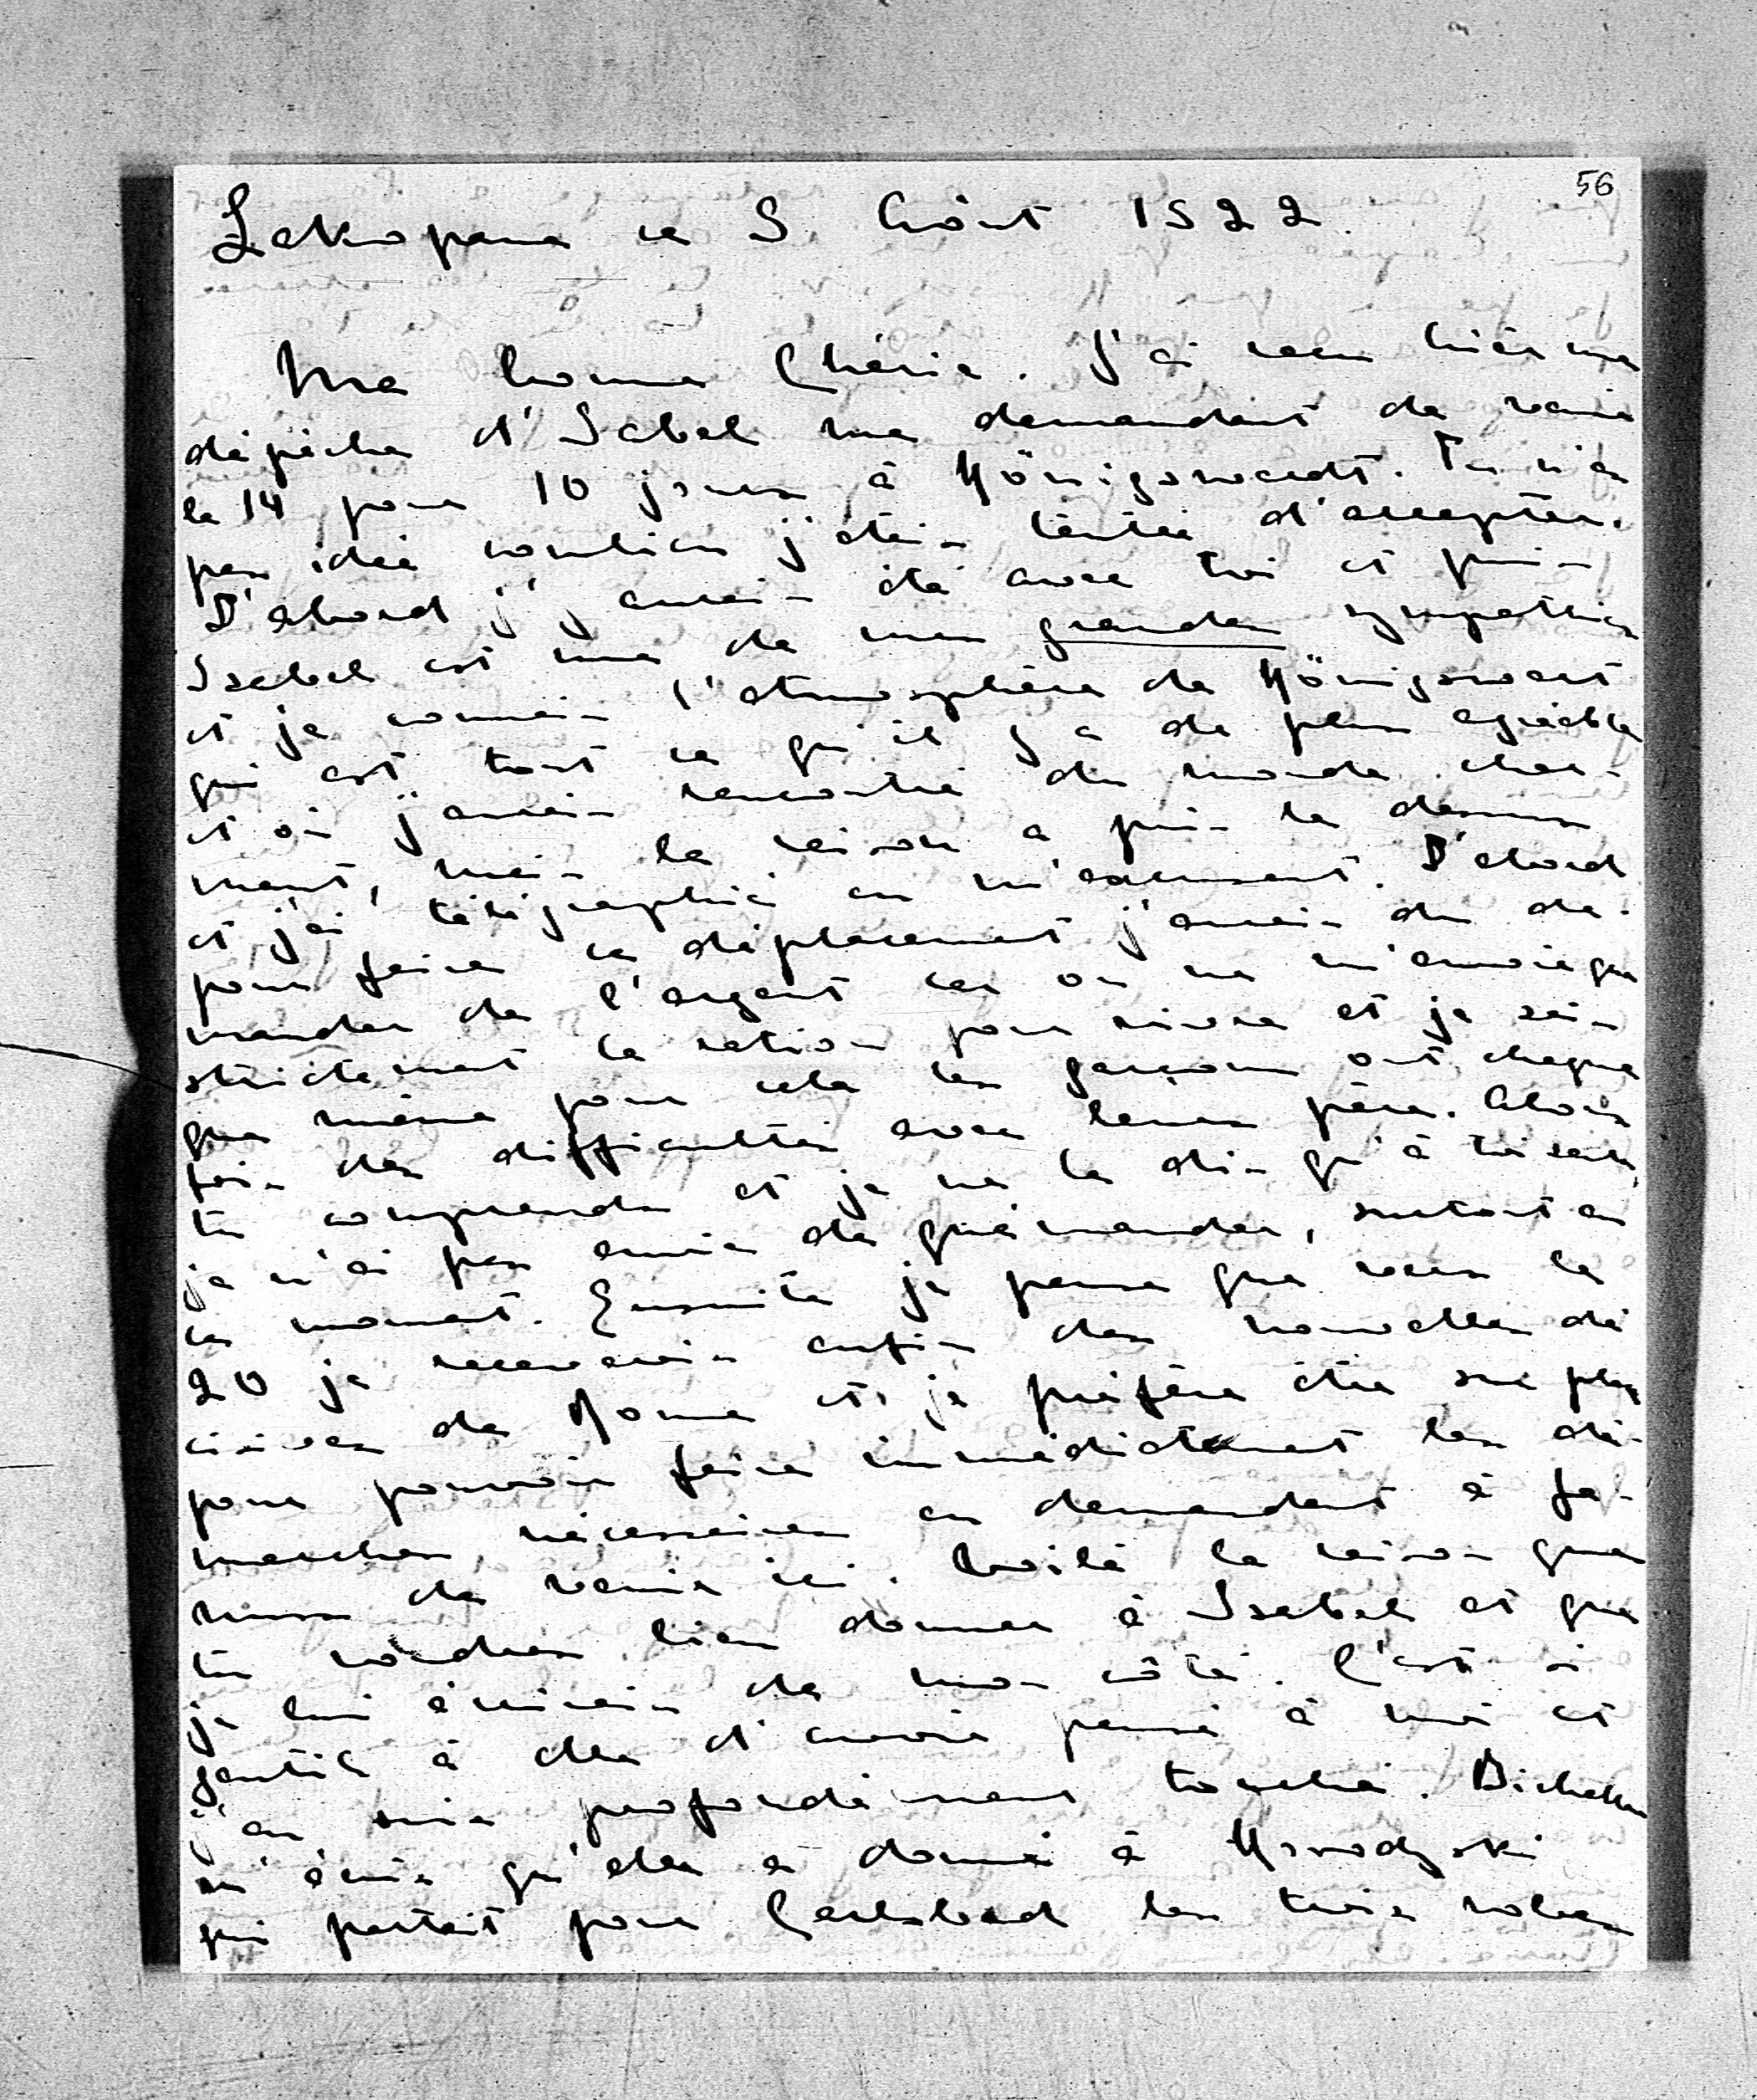 56
Zakopane ce 9 Août 1922.
Ma bonne Chérie. J'ai recu hiér une
dépèche d'Isabel me demandant de venir
le 14 pour 10 jours à Königswardt. Tu n'as
pas idée combien j'étais tentée d'accepter.
D'abord j'y aurais été avec toi et puis
Isabel est une de mes grandes sympathies
et je connais l'atmosphère de Königswart
qui est tout ce qu'il y a de plus agréable
et où j'aurais rencontré du monde char-
mant, mais la raison a pris le dessus
et j'ai télégraphié en m'excusant. D'abord
pour faire ce déplacement j'aurais du de-
mander de l'argent car on ne m'envoie que
strictement la ration pour vivre et je sais
que même pour cela les garçons ont chaque
fois des difficultés avec leur père. Alors
tu comprends et je ne le dis qu'à toi seule,
je n'ai pas envie de quémander, surtout en
ce moment. Ensuite je pense que vers le
20 je recevrais enfin des nouvelles dé
cisives de Rome et je préfère être sur place
pour pouvoir faire immédiatement les dé-
marches nécessaires en demandant à
de venir ici. Voilà la raison que
tu voudras bien donner à Isabel et que
je lui écrirais de mon côté. C'est si
gentil à elle d'avoir pensé à moi et
j'en suis profondément touchée.
m'écris qu'elle a donné à
qui partait pour Carlsbad les trois robes